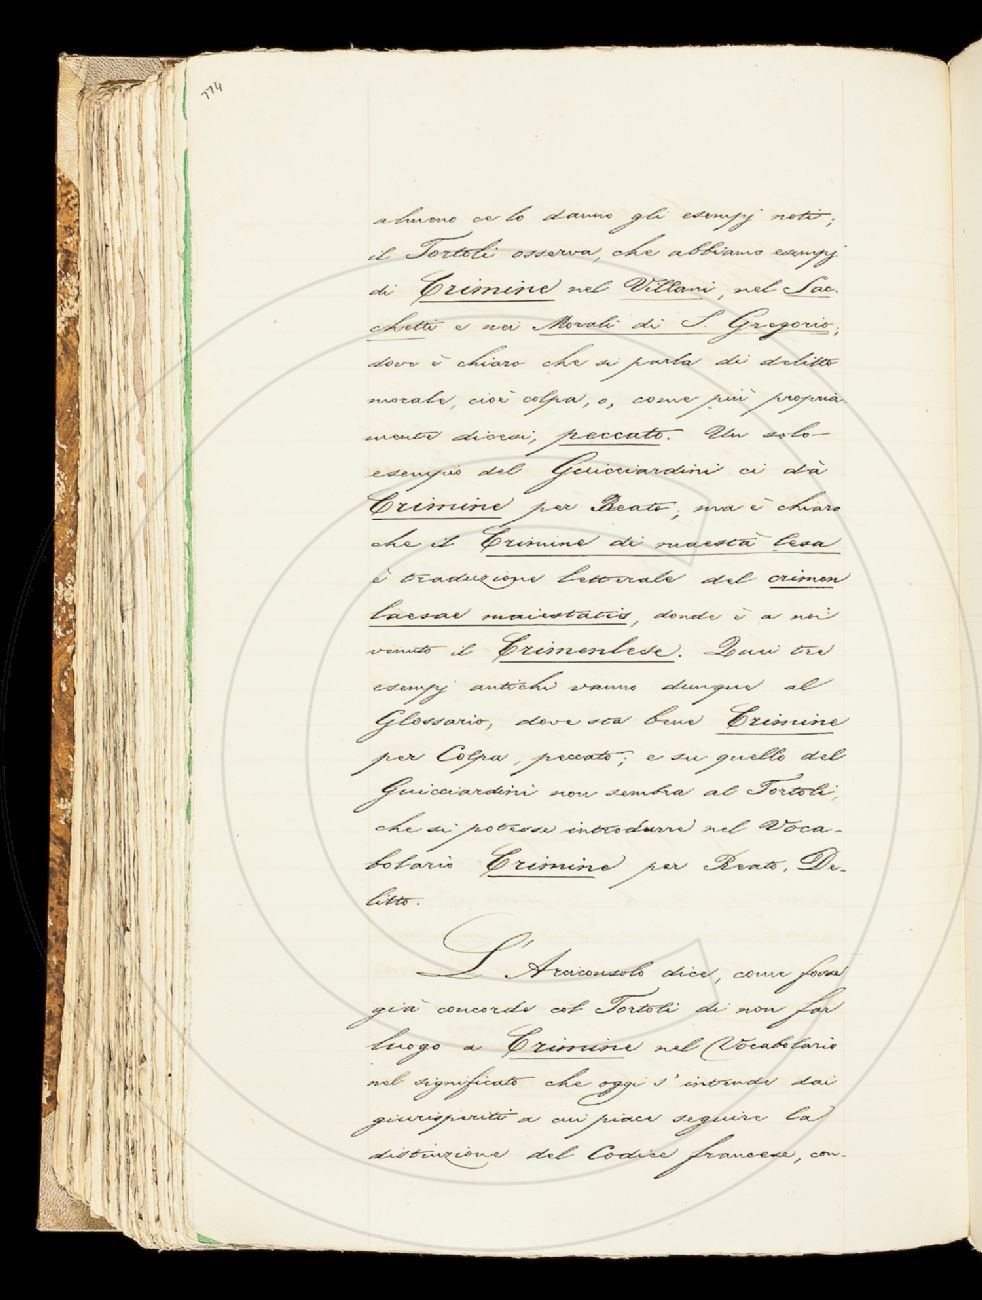 774
almeno ce lo danno gli esempj noti;
il Tortoli osserva, che abbiamo esempj
di Crimine nel Villani, nel Sac-
chetti e nei Morali di S. Gregorio;
dove è chiaro che si parla di delitto
morale, cioè colpa, o, come più propria-
mente dicesi, peccato. Un solo
esempio del Guicciardini ci dà
Crimine per Reato; ma è chiaro
che il Crimine di maestà lesa
è traduzione letterale del crimen
laesae maiestatis, donde è a noi
venuto il Crimenlese. Quei tre
esempj antichi vanno dunque al
Glossario, dove sta bene Crimine
per Colpa, peccato; e su quello del
Guicciardini non sembra al Tortoli,
che si potesse introdurre nel Voca-
bolario Crimine per Reato, De-
litto.
L'Arciconsolo dice, come fosse
già concorde col Tortoli di non far
luogo a Crimine nel Vocabolario
nel significato che oggi s'intende dai
giurisperiti a cui piace seguire la
distinzione del Codice francese, con-